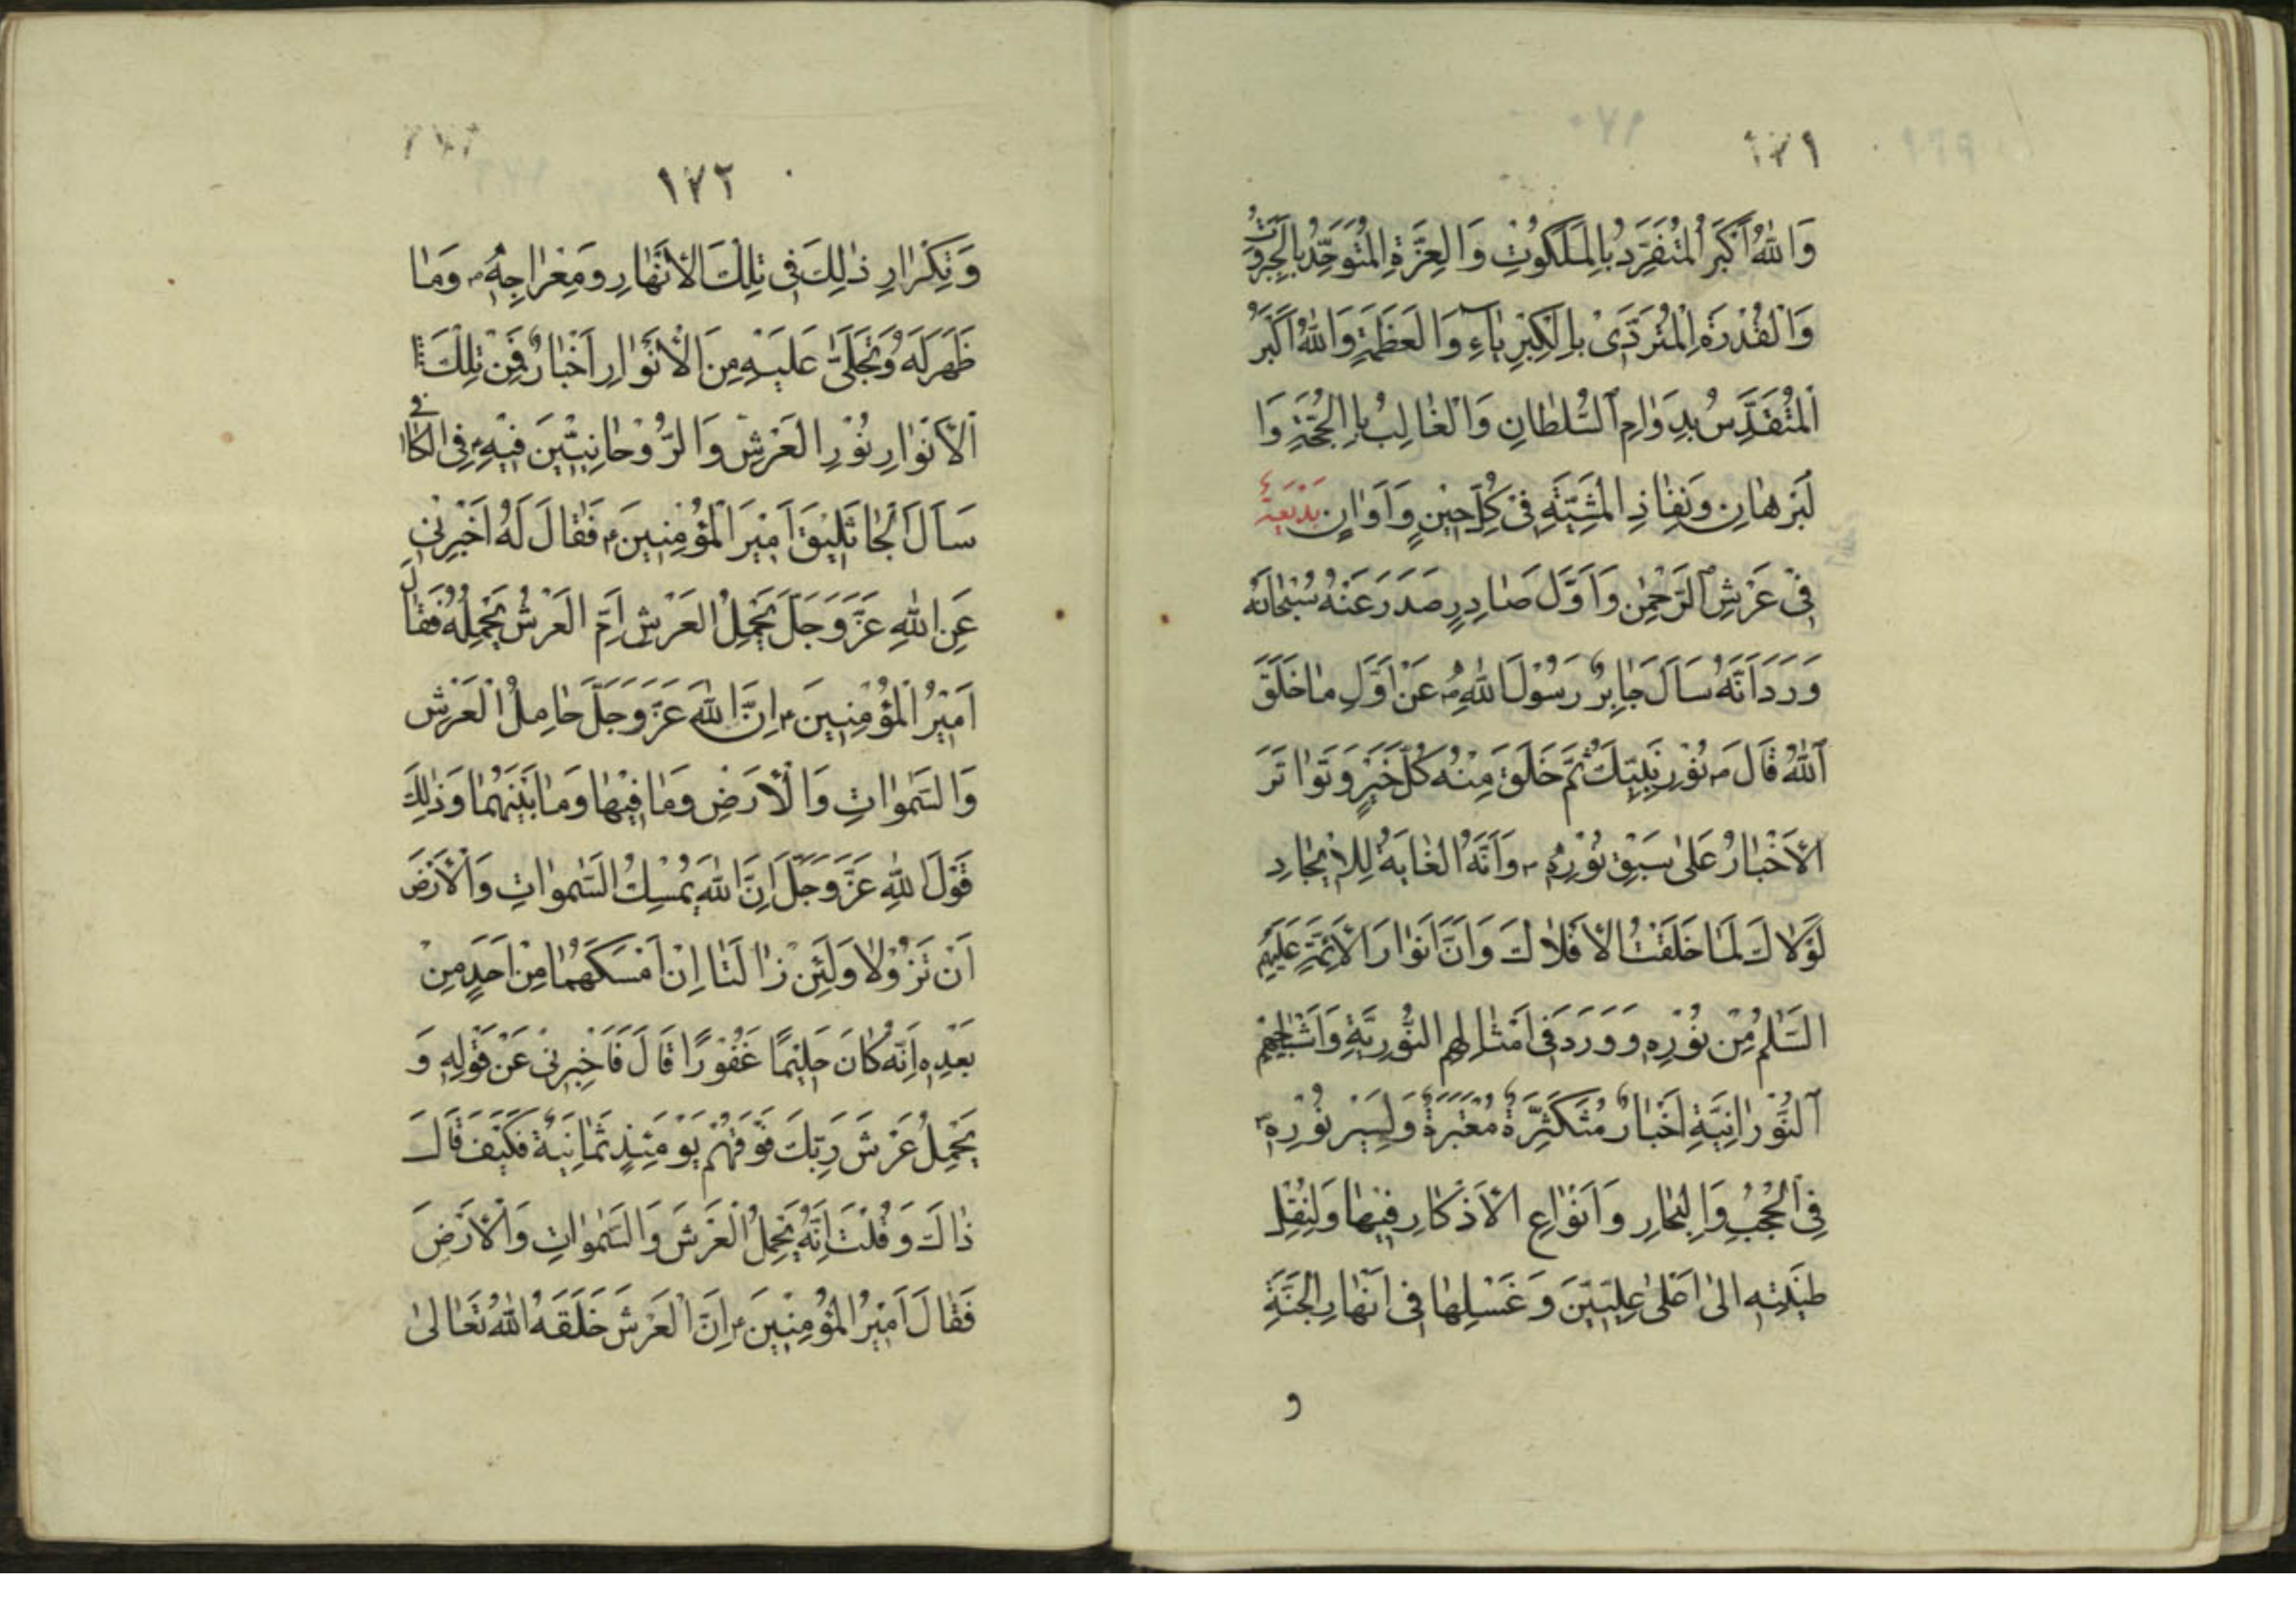 ١٧١
وَاللّٰهُ اَكْبَرُ الْمُتَفَرِّدُ بِالْمَلَكُوتِ وَالْعِزَّةِ الْمُتَوَحِّدُ بِالْجَبَرُوتِ
وَالْقُدْرَةِ الْمُتَرَدّٰى بِالْكِبْرِيٰاءِ وَالْعَظَمَةِ وَاللّٰهُ اَكْبَرُ
الْمُتَقَدِّسُ بِدَوٰامِ السُّلْطٰانِ وَالْغٰالِبُ بِالْحُجَّةِ وَا
لْبُرْهٰانِ وَنَفٰاذِ الْمَشِيَّةِ فِىْ كُلِّ حِيْنٍ وَاَوٰانٍ بَدْيَعَةٌ
فِىْ عَرْشِ الرَّحْمٰنِ وَاَوَّلَ صٰادِرٍ صَدَرَ عَنْهُ سُبْحٰانَهُ
وَرَدَ اَنَّهُ سَاَلَ جٰابِرٌ رَسُوْلَ اللّٰهِ ص عَنْ اَوَّلِ مٰا خَلَقَ
اللّٰهُ قٰالَ ص نُوْرُ نَبِيِّكَ ثُمَّ خَلَقَ مِنْهُ كُلَّ خَيْرٍ وَتَوٰاتَرَ
الْاَخْبٰارُ عَلٰى سَبْقِ نُوْرِهِ ص وَاَنَّهُ الْغٰايَةُ لِلْاِيْجٰادِ
لَوْلٰاكَ لَمٰا خَلَقْتُ الْاَفْلٰاكَ وَاَنَّ اَنْوٰارَ الْاَئِمَّةِ عَلَيْهِمُ
السَّلٰمُ مِنْ نُوْرِهِ وَوَرَدَ فِى اَمْثٰالِهِمِ النُّوْرِيَّةِ وَاَشْبٰاحِهِمْ
النُّوْرٰانِيَّةِ اَخْبٰارٌ مُتَكَثِّرَةٌ مُعْتَبَرَةٌ وَلِسَيْرِ نُوْرِهِ ص
فِى الْحُجُبِ وَالْبِحٰارِ وَاَنْوٰاعِ الْاَذْكٰارِ فِيْهٰا وَلِنَقْلِ
طِيْنَتِهِ اِلىٰ اَعْلىٰ عِلِّيِّيْنَ وَغَسْلِهٰا فِى اَنْهٰارِ الْجَنَّةِ
و
١٧٢
وَتِكْرٰارِ ذٰلِكَ فِى تِلْكَ الْاَنْهٰارِ وَمِعْرٰاجِهِ ص وَمٰا
ظَهَرَ لَهُ وَتَجَلّٰى عَلَيْهِ مِنَ الْاَنْوٰارِ اَخْبٰارٌ فَمِنْ تِلْكَ
الْاَنْوٰارِ نُوْرِ الْعَرْشِ وَالرُّوْحٰانِيِّيْنَ فِيْهِ فِى الْكٰافِى
سَاَلَ الْجٰاثَلِيْقَ اَمِيْرَ الْمُؤْمِنِيْنَ ع فَقٰالَ لَهُ اَخْبِرْنِىْ
عَنِ اللّٰهِ عَزَّ وَجَلَّ يَحْمِلُ الْعَرْشَ اَمِ الْعَرْشُ يَحْمِلُهُ فَقٰالَ
اَمِيْرُ الْمُؤْمِنِيْنَ ع اِنَّ اللّٰهَ عَزَّ وَجَلَّ حٰامِلُ الْعَرْشِ
وَالسَّمٰوٰاتِ وَالْاَرَضِ وَمٰا فِيْهٰا وَمٰا بَيْنَهُمٰا وَذٰلِكَ
قَوْلَ اللّٰهِ عَزَّ وَجَلَّ اِنَّ اللّٰهَ يُمْسِكُ السَّمٰوٰاتِ وَالْاَرْضَ
اَنْ تَزُوْلٰا وَلَئِنْ زٰالَتٰا اِنْ اَمْسَكَهُمٰا مِنْ اَحَدٍ مِنْ
بَعْدِهِ اِنَّهُ كٰانَ حَلِيْمًا غَفُوْرًا قٰالَ فَاَخْبِرْنِىْ عَنْ قَوْلِهِ وَ
يَحْمِلُ عَرْشَ رَبِّكَ فَوْقَهُمْ يَوْمَئِذٍ ثَمٰانِيَةٌ فَكَيْفَ قٰالَ
ذٰاكَ وَقُلْتَ اِنَّهُ يَحْمِلُ الْعَرْشَ وَالسَّمٰوٰاتِ وَالْاَرْضَ
فَقٰالَ اَمِيْرُ الْمُؤْمِنِيْنَ ع اِنَّ الْعَرْشَ خَلَقَهُ اللّٰهُ تَعٰالىٰ